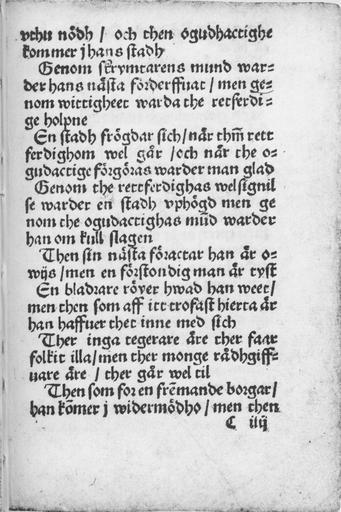 vthu nödh / och then ogudhactighe
kommer j hans stadh
Genom skrymtarens mund war=
der hans nästa förderffuat / men ge=
nom wittigheet warda the retferdi=
ge holpne
En stadh frögdar sich / när thm̃ rett
ferdighom wel går / och när the o=
gudactige förgöras warder man glad
Genom the rettferdighas welsignil
se warder en stadh vphögd men ge
nom the ogudactighas mūd warder
han om kull slagen
Then sin nästa föractar han är o=
wijs / men en förstondig man är tyst
En bladrare röyer hwad han weet /
men then som aff itt trofast hierta är
han haffuer thet inne med sich
Ther inga regerare äre ther faar
folkit illa / men ther monge rådhgiff=
uare äre / ther går wel til
Then som for en frēmande borgar /
han kōmer j widermödho / men then
C iiij